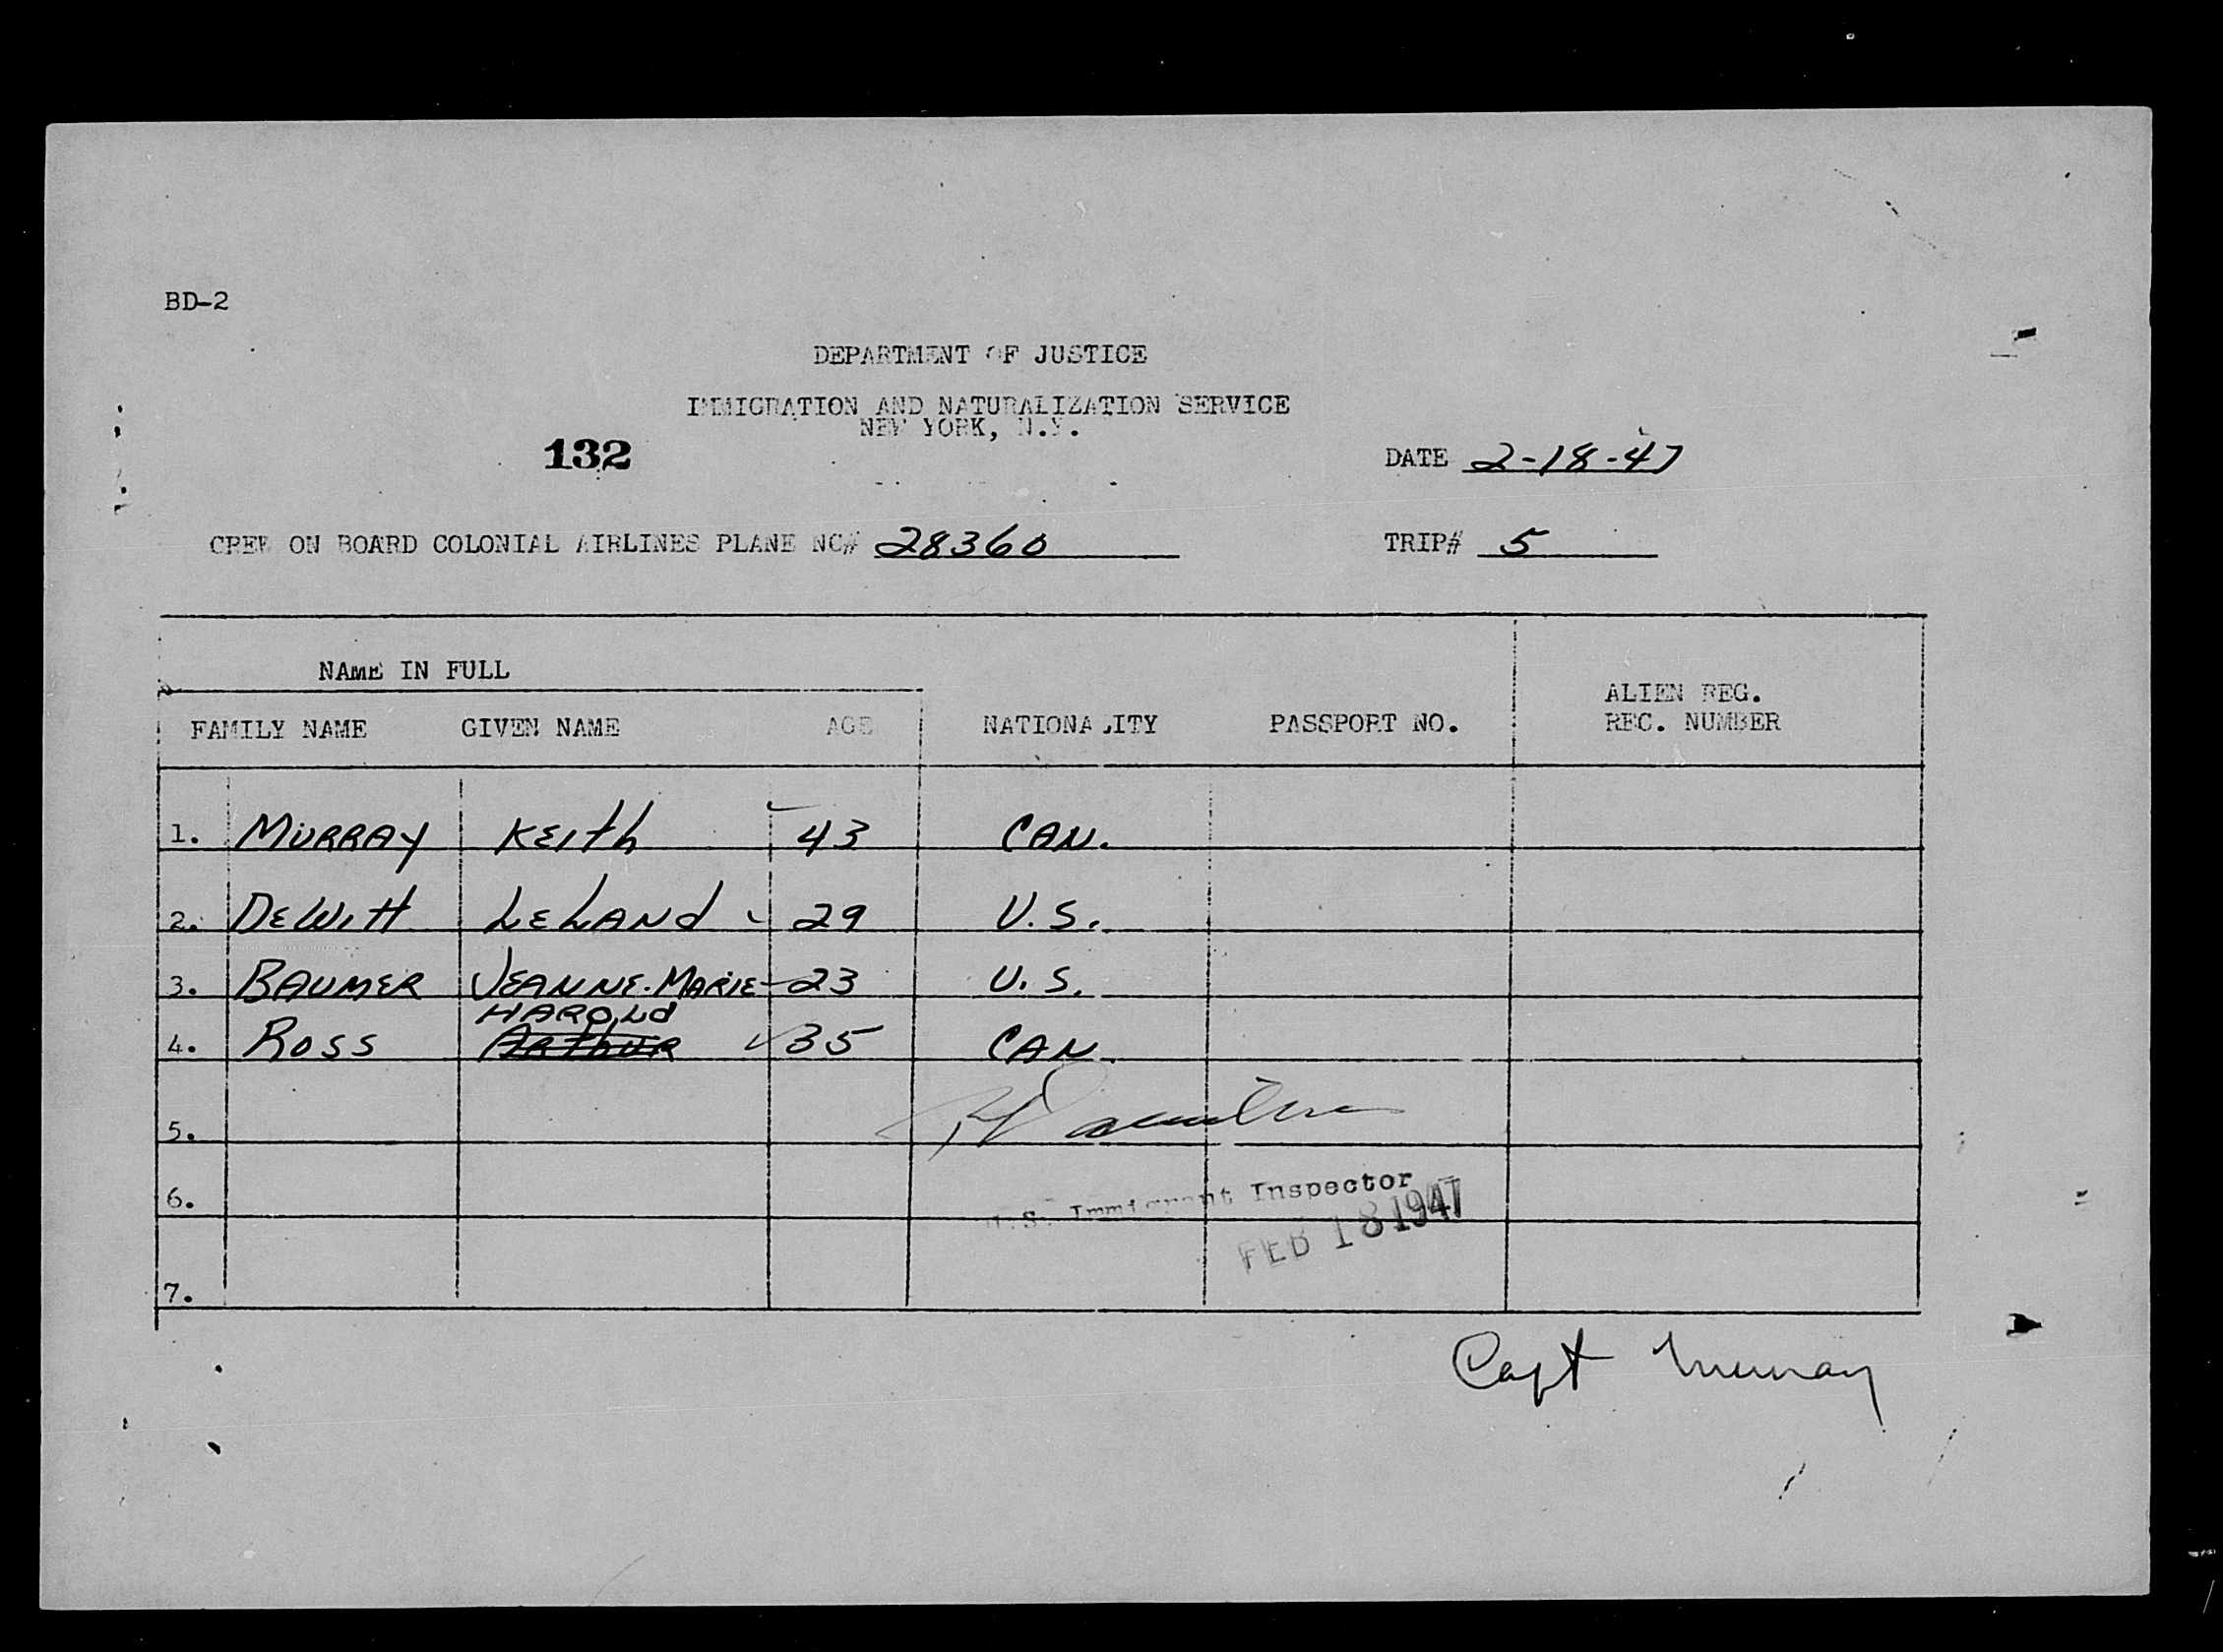 BD-2
DEPARTMENT OF JUSTICE
IMMIGRATION AND NATURALIZATION SERVICE
NEW YORK, N.Y.
132
DATE 2-18-47
CREW ON BOARD COLONIAL AIRLINES PLANE NC# 28360 TRIP# 5
NAME IN FULL
ALIEN REG.
FAMILY NAME GIVEN NAME AGE NATIONALITY PASSPORT NO. REC. NUMBER
1. MURRAY KEith 43 CAN.
2. DEWitt LELANd 29 U.S.
3. BAUMER JEANNE-MARIE 23 U.S.
HAROLd
4. ROSS ARthUR 35 CAN.
5.
6.
U.S. Immigrant Inspector
FEB 18 1947
7.
Capt Murray